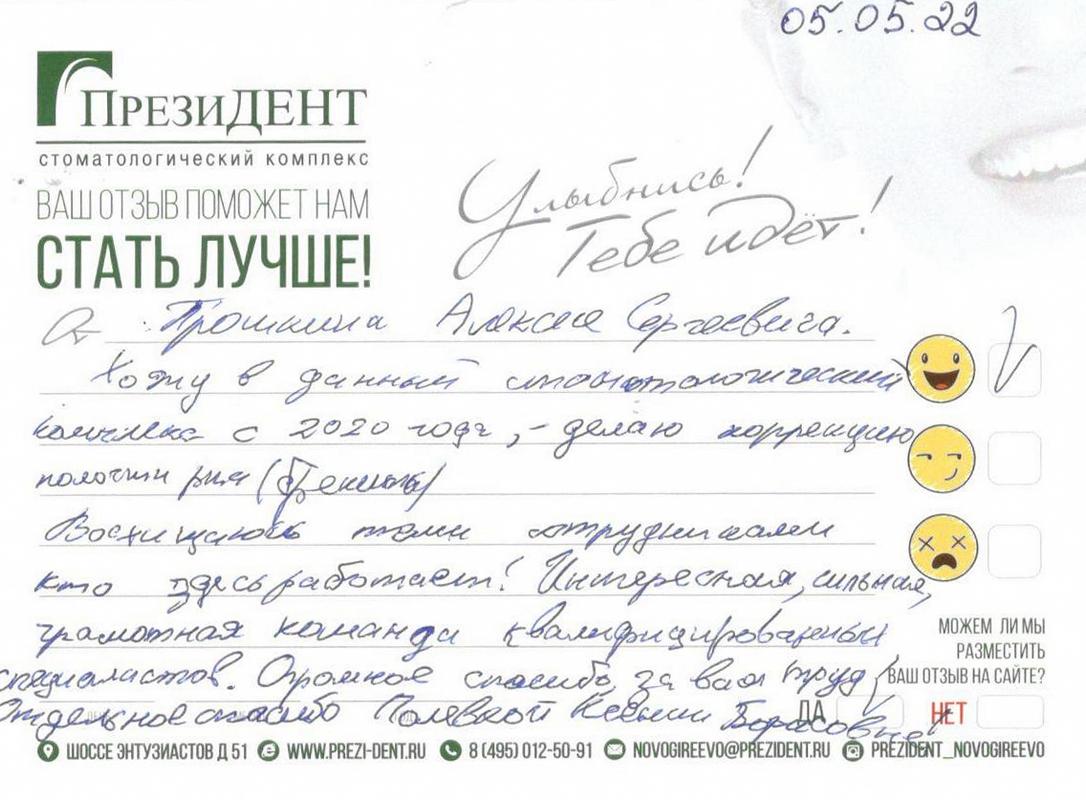 05.05.22
ПРЕЗИДЕНТ
СТОМАТОЛОГИЧЕСКИЙ КОМПЛЕКС
ВАШ ОТЗЫВ ПОМОЖЕТ НАМ
СТАТЬ ЛУЧШЕ!
Улыбнись!
Тебе идёт!
От Прошкина Алексея Сергеевича.
Хожу в данный стоматологический
комплекс с 2020 года, - делаю коррекцию
полости рта (брекеты)
Восхищаюсь теми сотрудниками
кто здесь работает! Интересная, сильная,
грамотная команда квалифицированных
специалистов. Огромное спасибо за ваш труд
Отдельное спасибо Полевкой Ксении Борисовне!
МОЖЕМ ЛИ МЫ
РАЗМЕСТИТЬ
ВАШ ОТЗЫВ НА САЙТЕ?
ДА НЕТ
ШОССЕ ЭНТУЗИАСТОВ Д 51 WWW.PREZI-DENT.RU 8 (495) 012-50-91 NOVOGIREEVO@PREZIDENT.RU PREZIDENT_NOVOGIREEVO